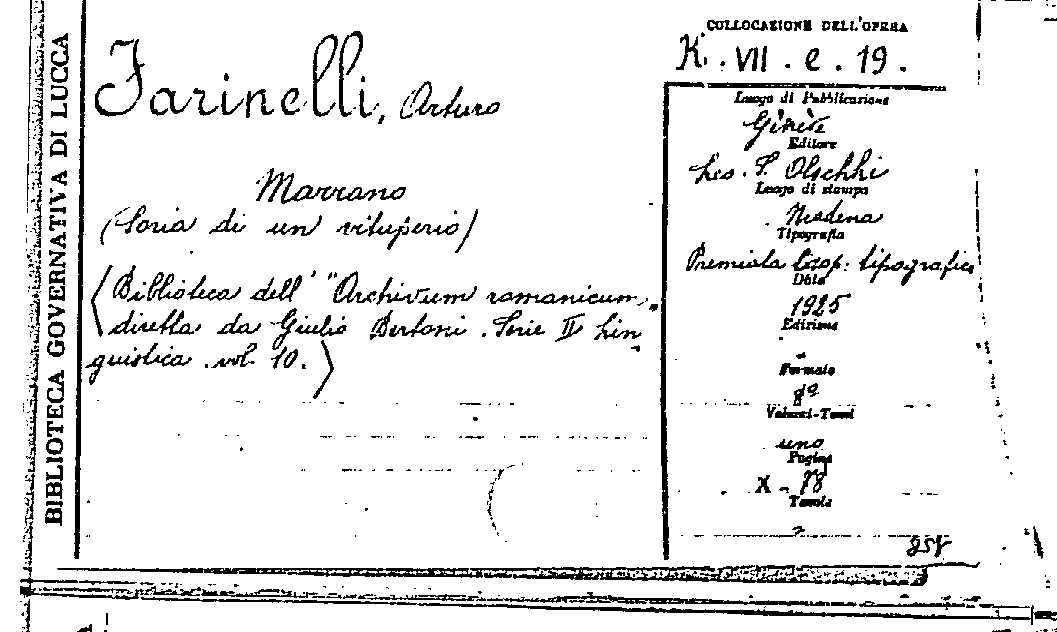 BIBLIOTECA GOVERNATIVA DI LUCCA
Farinelli, Arturo
Marrano
(Storia di un vituperio)
(Biblioteca dell' "Archivum romanicum„
diretta da Giulio Bertoni. Serie II Lin
guistica. vol. 10.)
COLLOCAZIONE DELL'OPERA
K. VII. e. 19.
Luogo di Pubblicazione
Ginève
Editore
Leo. S. Olschki
Luogo di stampa
Modena
Tipografia
Premiata coop: tipografica
Data
1925
Edizione
-
Formato
8º
Volumi-Tomi
uno
Pagine
X - 78
Tavole
-